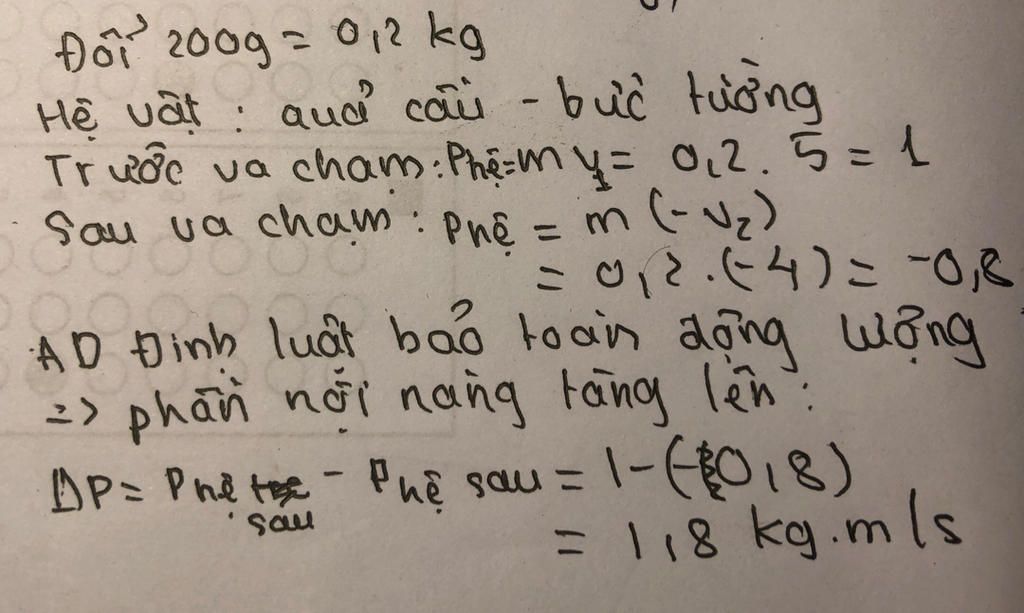 Đổi 200g = 0,2 kg
Hệ vật : quả cầu - bức tường
Trước va chạm: Phệ = m v₁ = 0,2. 5 = 1
Sau va chạm : Phệ = m (-v₂)
= 0,2 . (-4) = -0,8
AD Định luật bảo toàn động lượng
=> phần nội năng tăng lên :
ΔP = Phệ sau - Phệ sau = 1 - (-0,8)
= 1,8 kg.m/s